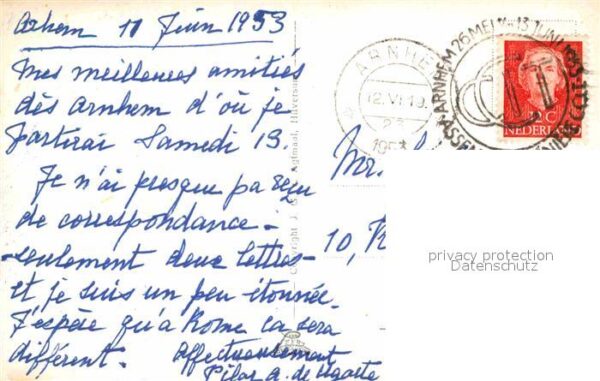 Arhem 11 Juin 1953
Mes meilleures amitiés
dès Arnhem d'où je
partirai Samedi 13.
Je n'ai presque pa reçu
de correspondance -
- seulement deux lettres -
et je suis un peu étonnée.
J'espère qu'à Rome ca sera
différent. Affectueusement
Pilar A. de Ugarte
Copyright J.
ARNHEM
12.VI.19
1953
ARNHEM 26 MEI 13 JUNI 1953
20 C
NEDERLAND
Mr.
10, R
privacy protection
Datenschutz